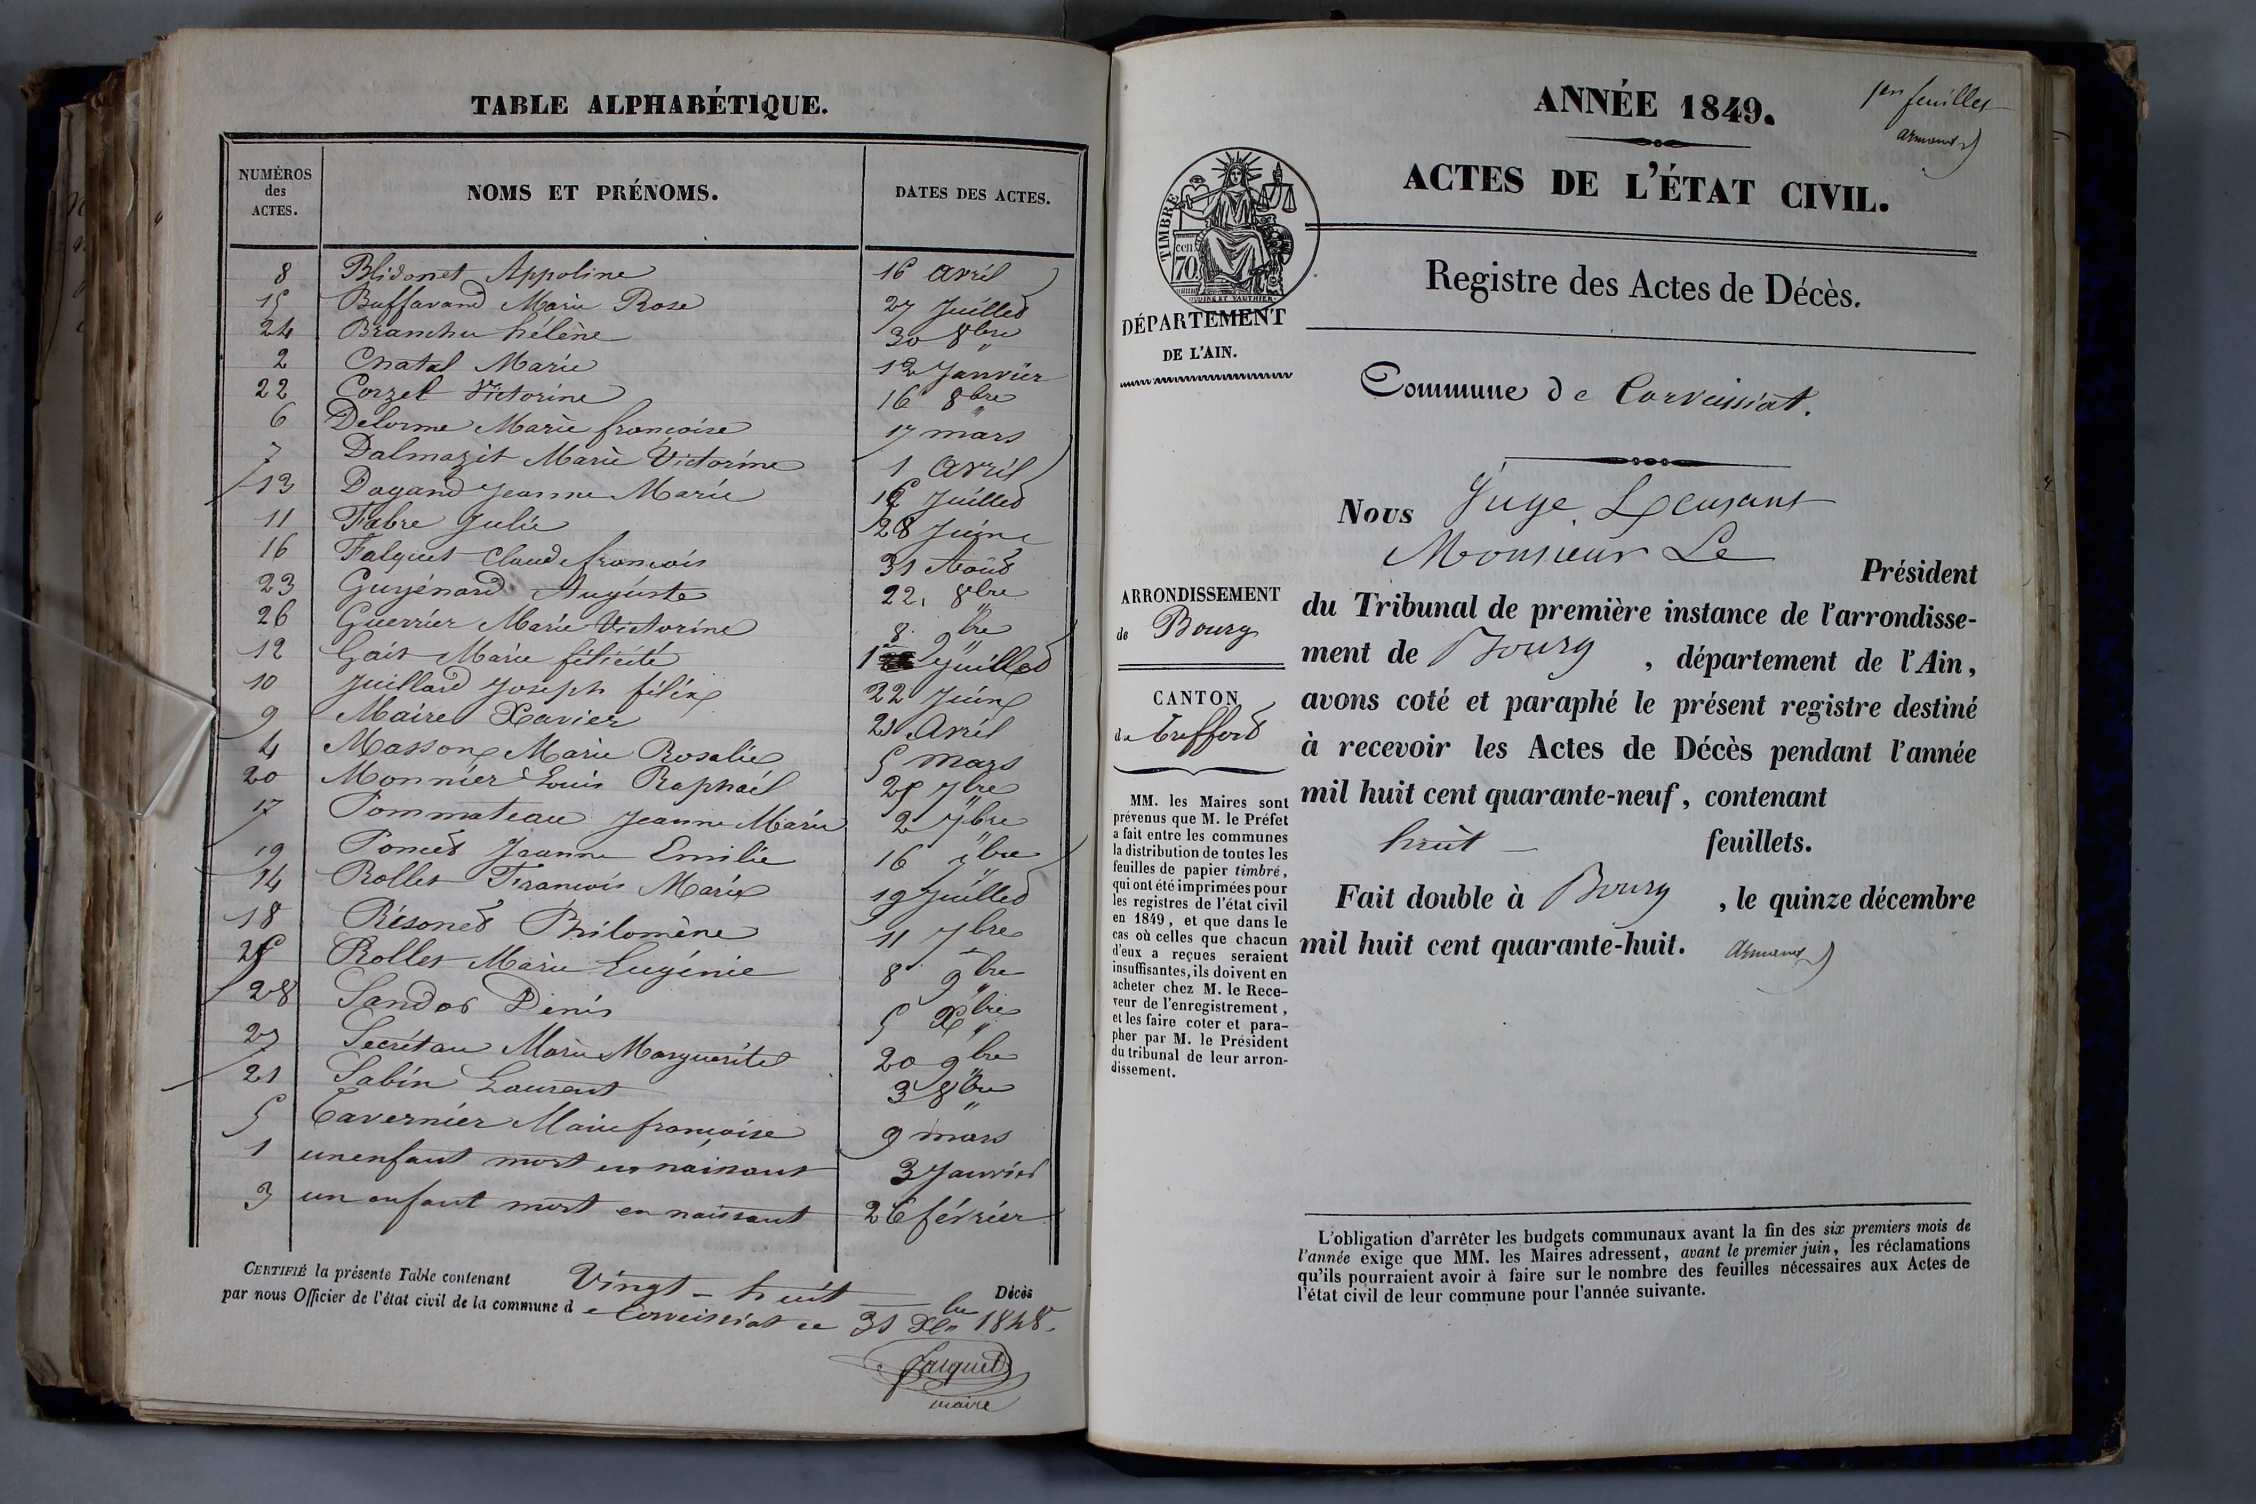 TABLE ALPHABÉTIQUE.
NUMÉROS
des
ACTES.
NOMS ET PRÉNOMS.
DATES DES ACTES.
8 Blidonet Appoline 16 avril
15 Buffavand Marie Rose 27 Juillet
24 Branchu hélène 30 8bre
2 Chatal Marie 12 Janvier
22 Corzet Victorine 16 8bre
6 Delorme Marie françoise 17 mars
7 Dalmazit Marie Victorine 1 avril
13 Dagand Jeanne Marie 16 Juillet
11 Fabre Julie 28 Juin
16 Falquet Claude françois 31 Août
23 Guyénard Auguste 22 8bre
26 Guerrier Marie Victorine 8 9bre
12 Gait Marie félicité 1er Juillet
10 Juillard Joseph félix 22 Juin
9 Maire Xavier 21 Avril
4 Masson Marie Rosalie 5 mars
20 Monnier Louis Raphaël 28 7bre
17 Pommateau Jeanne Marie 2 7bre
19 Poncet Jeanne Emilie 16 7bre
14 Rollet François Marie 19 Juillet
18 Résonet Philomène 11 7bre
25 Rollet Marie Eugénie 8 9bre
28 Sandos Denis 5 Xbre
27 Secrétan Marie Marguerite 20 9bre
21 Sabin Laurent 3 8bre
5 Tavernier Marie françoise 9 mars
1 un enfant mort en naissant 3 Janvier
3 un enfant mort en naissant 26 février
CERTIFIÉ la présente Table contenant Vingt-huit Décès
par nous Officier de l'état civil de la commune de Corveissiat ce 31 Xbre 1848.
Falquet
maire
1er feuillet
ANNÉE 1849.
ACTES DE L'ÉTAT CIVIL.
TIMBRE
70
cen
DÉPARTEMENT
DE L'AIN.
Registre des Actes de Décès.
Commune de Corveissiat.
Nous Juge
Monsieur Le Président
du Tribunal de première instance de l'arrondisse-
ment de Bourg, département de l'Ain,
avons coté et paraphé le présent registre destiné
à recevoir les Actes de Décès pendant l'année
mil huit cent quarante-neuf, contenant
huit feuillets.
Fait double à Bourg, le quinze décembre
mil huit cent quarante-huit.
ARRONDISSEMENT
de Bourg
CANTON
de Treffort
MM. les Maires sont
prévenus que M. le Préfet
a fait entre les communes
la distribution de toutes les
feuilles de papier timbré,
qui ont été imprimées pour
les registres de l'état civil
en 1849, et que dans le
cas où celles que chacun
d'eux a reçues seraient
insuffisantes, ils doivent en
acheter chez M. le Rece-
veur de l'enregistrement,
et les faire coter et para-
pher par M. le Président
du tribunal de leur arron-
dissement.
L'obligation d'arrêter les budgets communaux avant la fin des six premiers mois de
l'année exige que MM. les Maires adressent, avant le premier juin, les réclamations
qu'ils pourraient avoir à faire sur le nombre des feuilles nécessaires aux Actes de
l'état civil de leur commune pour l'année suivante.